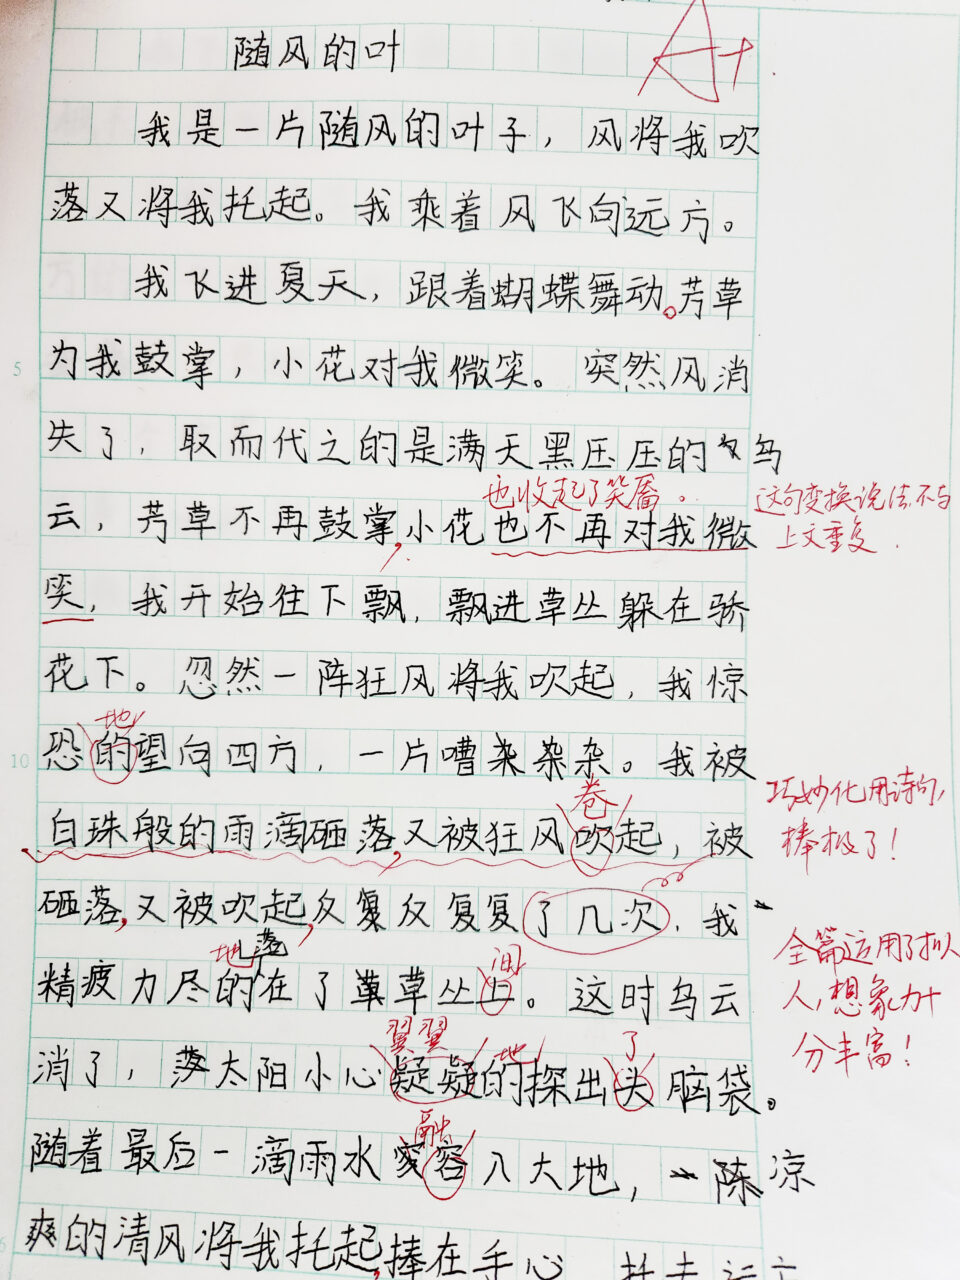 随风的叶
A+
我是一片随风的叶子，风将我吹
落又将我托起。我乘着风飞向远方。
我飞进夏天，跟着蝴蝶舞动。芳草
为我鼓掌，小花对我微笑。突然风消
失了，取而代之的是满天黑压压的乌
也收起了笑靥。
这句变换说法不与
上文重复.
云，芳草不再鼓掌，小花也不再对我微
笑，我开始往下飘，飘进草丛躲在骄
花下。忽然一阵狂风将我吹起，我惊
地
恐的望向四方，一片嘈杂杂。我被
巧妙化用诗句，
棒极了！
卷
白珠般的雨滴砸落，又被狂风吹起，被
砸落，又被吹起，反复反复复了几次，我
地 落 间
精疲力尽的在了草丛上。这时乌云
全篇运用了拟
人，想象力十
分丰富！
翼翼 地 了
消了，太阳小心疑疑的探出头脑袋。
融
随着最后一滴雨水容入大地，一凉
爽的清风将我托起，捧在手心
5
10